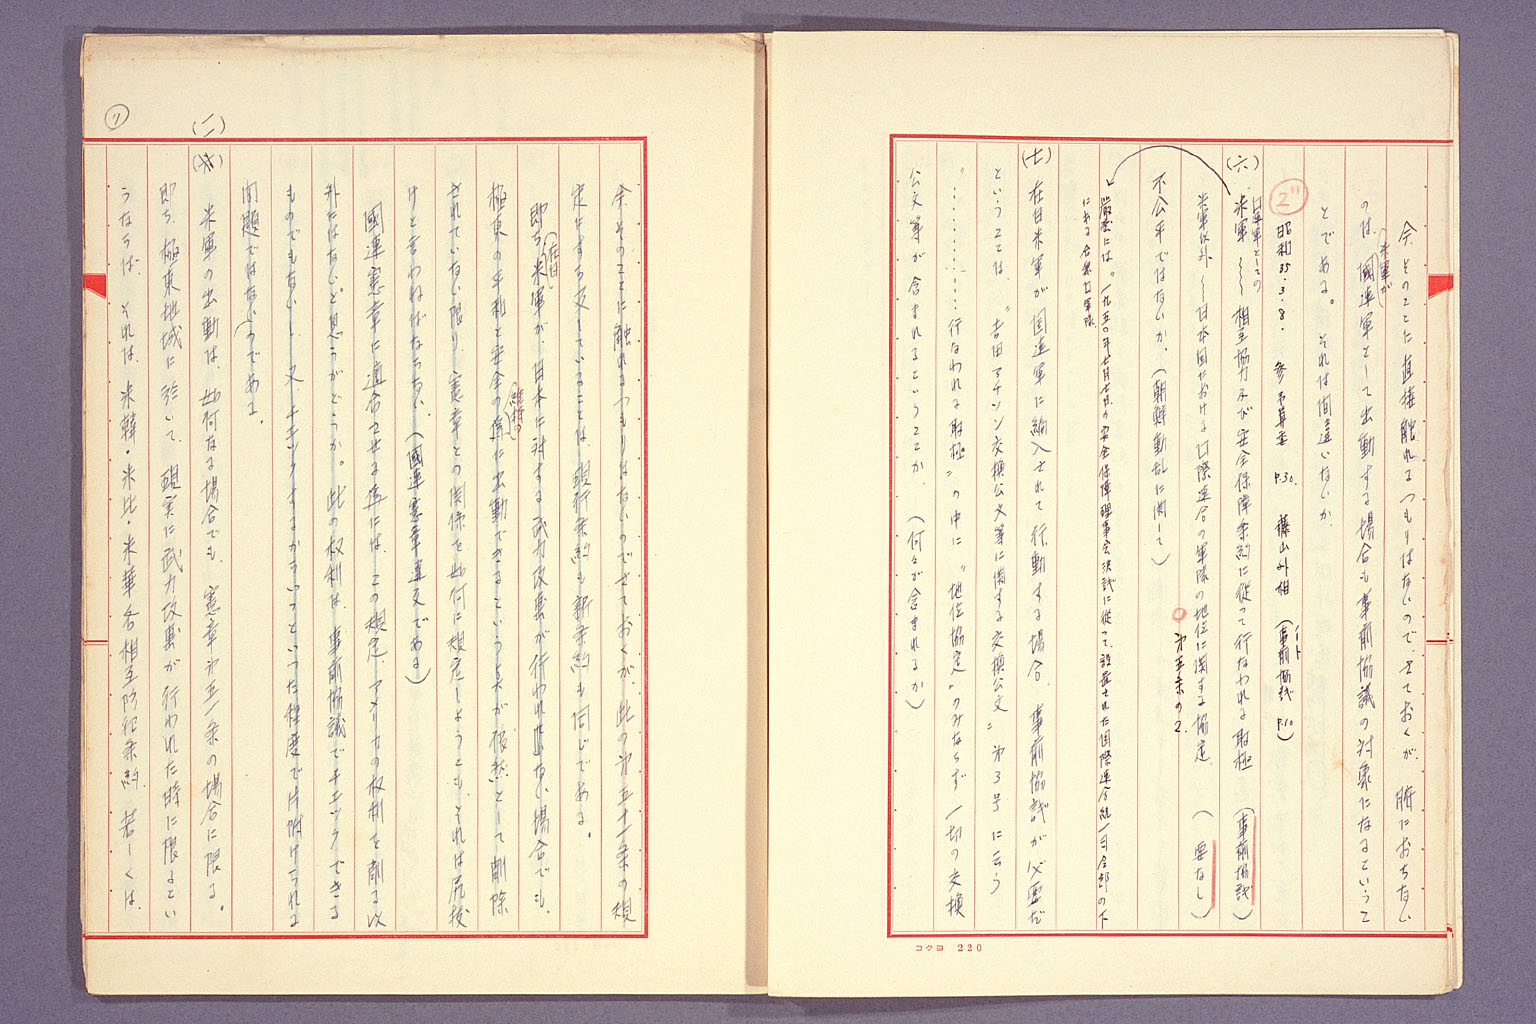 今、そのことに直接触れるつもりはないので、さておくが、腑におちない
のは、國連軍として出動する場合も事前協議の対象になるというこ
米軍が
とである。それは間違いないか。
2"
昭和35.3.8. 参予算委 P.30. 藤山外相 (事前協議 P.10)
ノート
(六) 米軍 〜〜 相互協力及び安全保障条約に従って行なわれる取極 (事前協議)
日軍軍としての
米軍以外 〜〜 日本国における国際連合の軍隊の地位に関する協定 (要なし)
不公平ではないか。(朝鮮動乱に関して)
○ 第五条の2.
厳密には"一九五〇年七月七日の安全保障理事会決議に従って、設置された国際連合統一司令部の下
にある合衆国軍隊
(七) 在日米軍が国連軍に編入されて行動する場合、事前協議が必要だ
ということは、"吉田アチソン交換公文等に関する交換公文"第3号に云う
"…………行なわれる取極"の中に"地位協定"のみならず一切の交換
公文等が含まれるということか。(何々が含まれるか)
コクヨ 220
今、そのことに触れるつもりはないのでさておくが、此の第五十一条の規
定に
ていることは、現行条約も新条約も同じである。
即ち、米軍が、日本に対する武力攻撃が行われない場合でも、
(在日)
極東の平和と安全の為に出動できるということが依然として削除
維持の
されていない限り、憲章との関係を如何に規定しようとも、それは尻抜
けと言わねばならない。(國連憲章違反である)
國連憲章に適合させる為には、この規定、アメリカの権利を削る以
外にはないと思うがどうか。此の権利は、事前協議でチェックできる
ものでもないし、又、チェックするからいいといった程度で片附けられる
問題ではないのである。
(二)
米軍の出動は、如何なる場合でも、憲章第五一条の場合に限る。
即ち、極東地域に於いて、現実に武力攻撃が行われた時に限るとい
うならば、それは、米韓・米比・米華各相互防衛条約、若しくは、
7